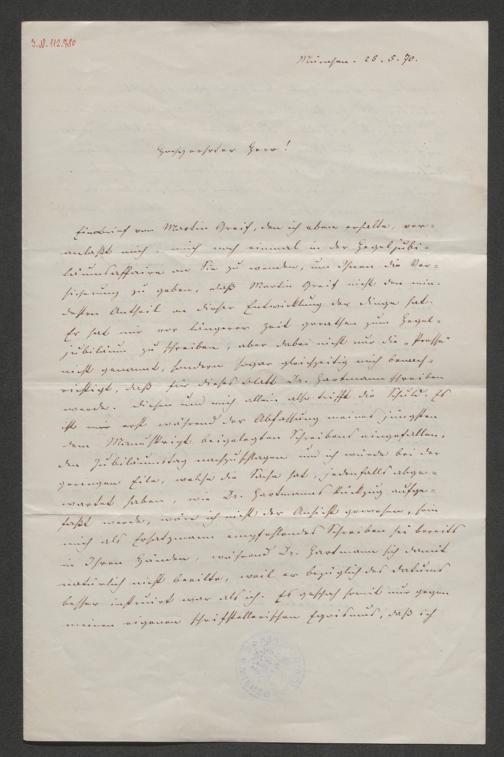 I.N.112.780
München. 26.5.70.
Hochgeehrter Herr!
Ein Brief von Martin Greif, den ich eben erhalte, ver-
anlaßt mich, mich noch einmal in der Hegeljubi-
läumsaffaire an Sie zu wenden, um Ihnen die Ver-
sicherung zu geben, daß Martin Greif nicht den min-
desten Antheil an dieser Entwicklung der Dinge hat.
Er hat mir vor längerer Zeit gerathen zum Hegel-
jubiläum zu schreiben, aber dabei nicht nur die „Presse“
nicht genannt, sondern sogar gleichzeitig mich benach-
richtigt, daß für dieses Blatt Dr. Hartmann schreiben
werde. Diesen und mich allein also trifft die Schuld. Es
ist mir erst während der Abfassung meines jüngsten
dem Manuskript beigelegten Schreibens eingefallen,
den Jubiläumstag nachzuschlagen und ich würde bei der
geringen Eile, welche die Sache hat, jedenfalls abge-
wartet haben, wie Dr. Hartmanns Rückzug aufge-
faßt werde, wäre ich nicht der Ansicht gewesen, sein
mich als Ersatzmann empfehlendes Schreiben sei bereits
in Ihren Händen, während Dr. Hartmann sich damit
natürlich nicht beeilte, weil er bezüglich des Datums
besser instruirt war als ich. Es geschah somit nur gegen
meinen eigenen schriftstellerischen Egoismus, daß ich